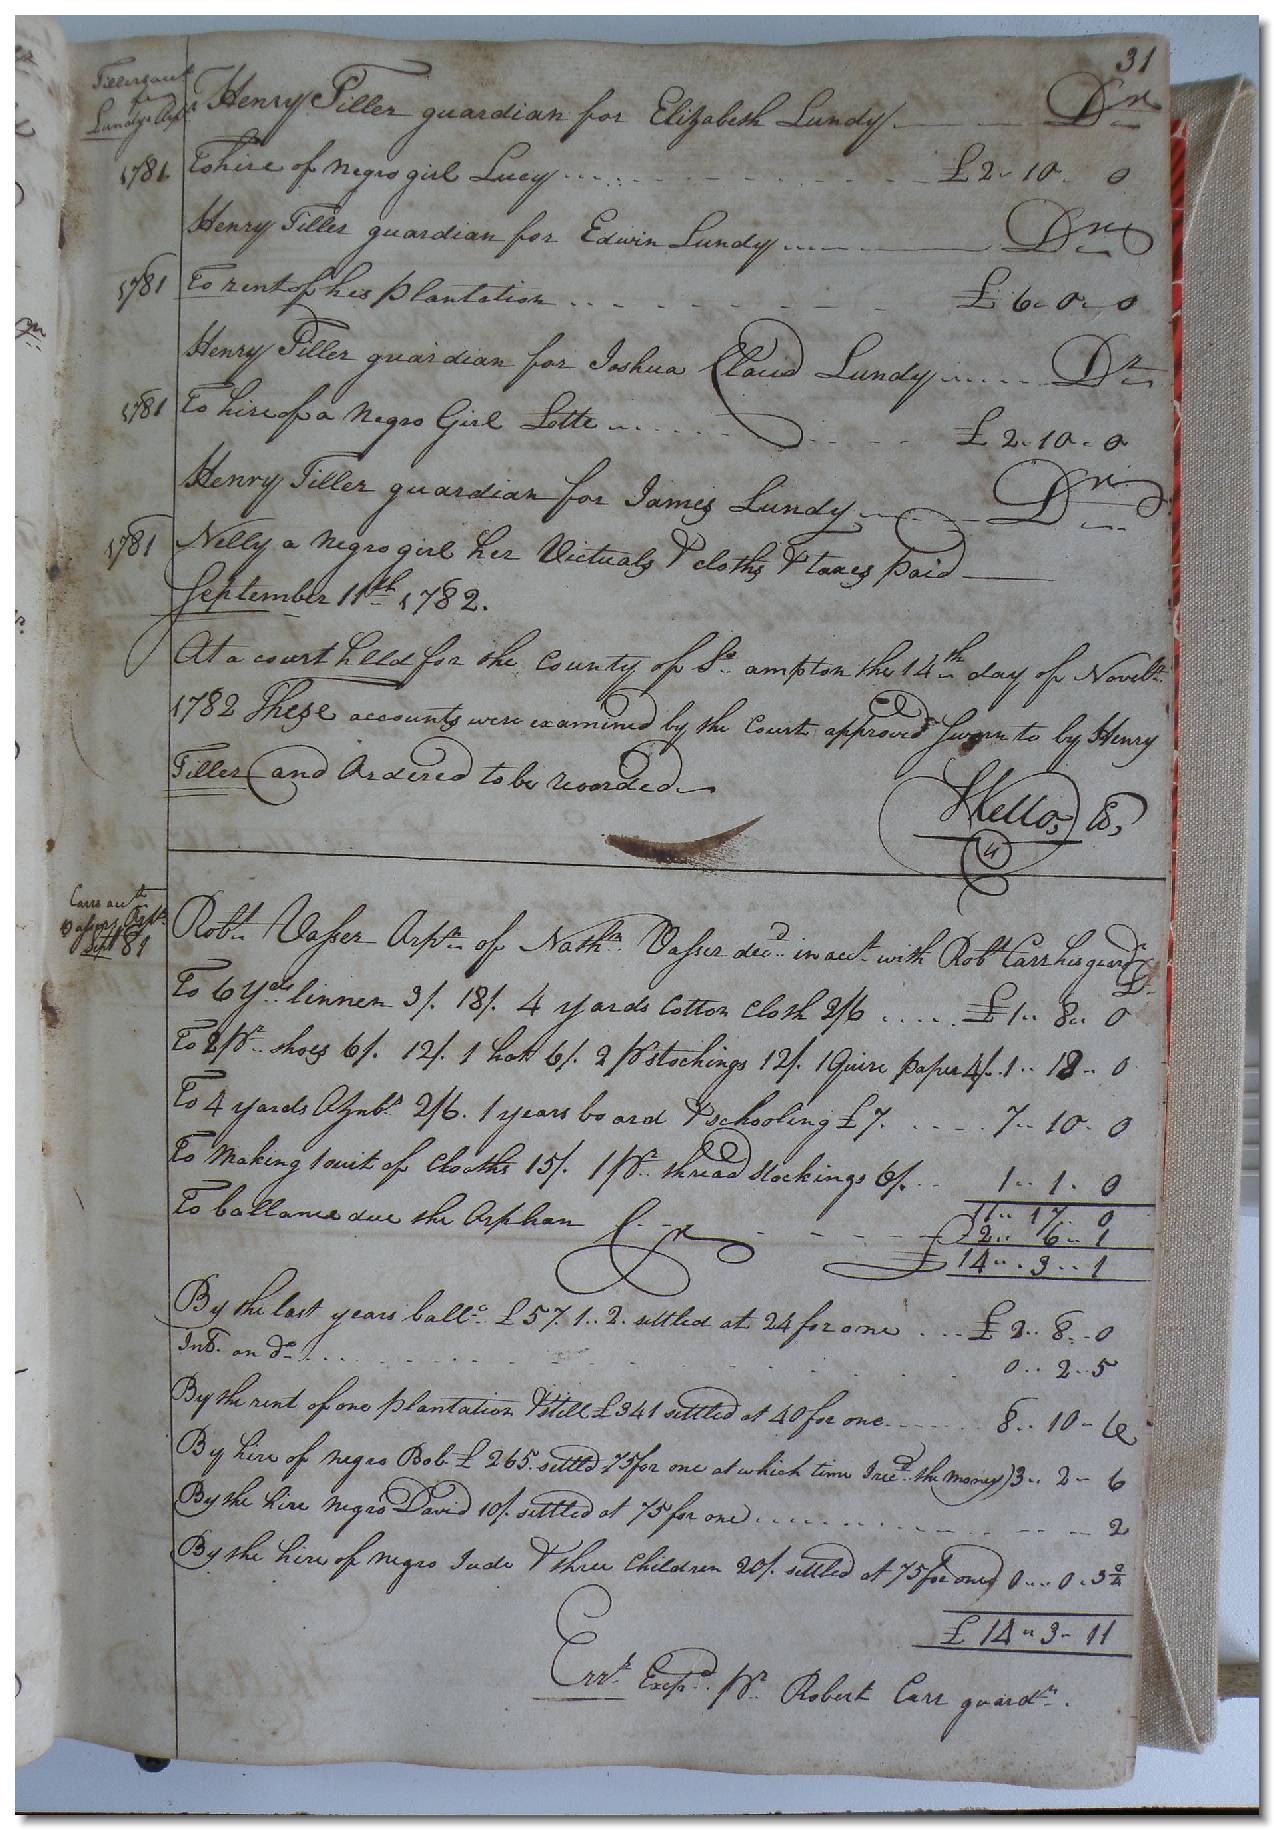 31
Tillers acct
for
Lundys Orps
Henry Tiller guardian for Elizabeth Lundy Dr
1781 To hire of negro girl Lucy £2.. 10. 0
Henry Tiller guardian for Edwin Lundy Dr
1781 To rent of his plantation £ 6.. 0.. 0
Henry Tiller guardian for Joshua Claud Lundy Dr
1781 To hire of a Negro Girl Lotte £ 2.. 10.. 0
Henry Tiller guardian for James Lundy Dr
1781 Nelly a negro girl her Victuals & cloths & taxes paid
September 11th 1782.
At a court held for the County of So ampton the 14th day of Novembr
1782 These accounts were examined by the court approved Sworn to by Henry
Tiller and Ordered to be recorded
Carrs acct
Vassers Orpn
Sept 81
Robt. Vasser Orpn. of Nathn. Vasser decd. in acct. with Robt Carr his guardn
Dr
To 6 yds. linnen 3/. 18/. 4 yards cotton cloth 2/6 .... £1.. 8.. 0
To 2 pr.. shoes 6/. 12/. 1 hat 6/. 2 pr stockings 12/. 1 Quire paper 4/. 1.. 18.. 0
To 4 yards Oznbs. 2/6. 1 years board & schooling £7. .... 7.. 10.. 0
To making 1 suit of cloaths 15/. 1 pr. thread stockings 6/. .. 1.. 1. 0
11.. 17.. 0
To ballance due the Orphan 2.. 6.. 1
14... 3.. 1
By the last years balle. £57. 1.. 2. settled at 24 for one ... £ 2.. 8.. 0
Intt. on do. 0.. 2.. 5
By the rent of one plantation & still £341 settled at 40 for one 8.. 10 - 6
By hire of negro Bob £ 265. settled 75 for one at which time I recd. the money) 3.. 2 - 6
By the hire negro David 10/. settled at 75 for one 2
By the hire of negro Jude & three children 20/. settled at 75 for one) 0... 0. 3 2/4
£ 14.. 3 - 11
Errs. Excepd. pr. Robert Carr guardn.